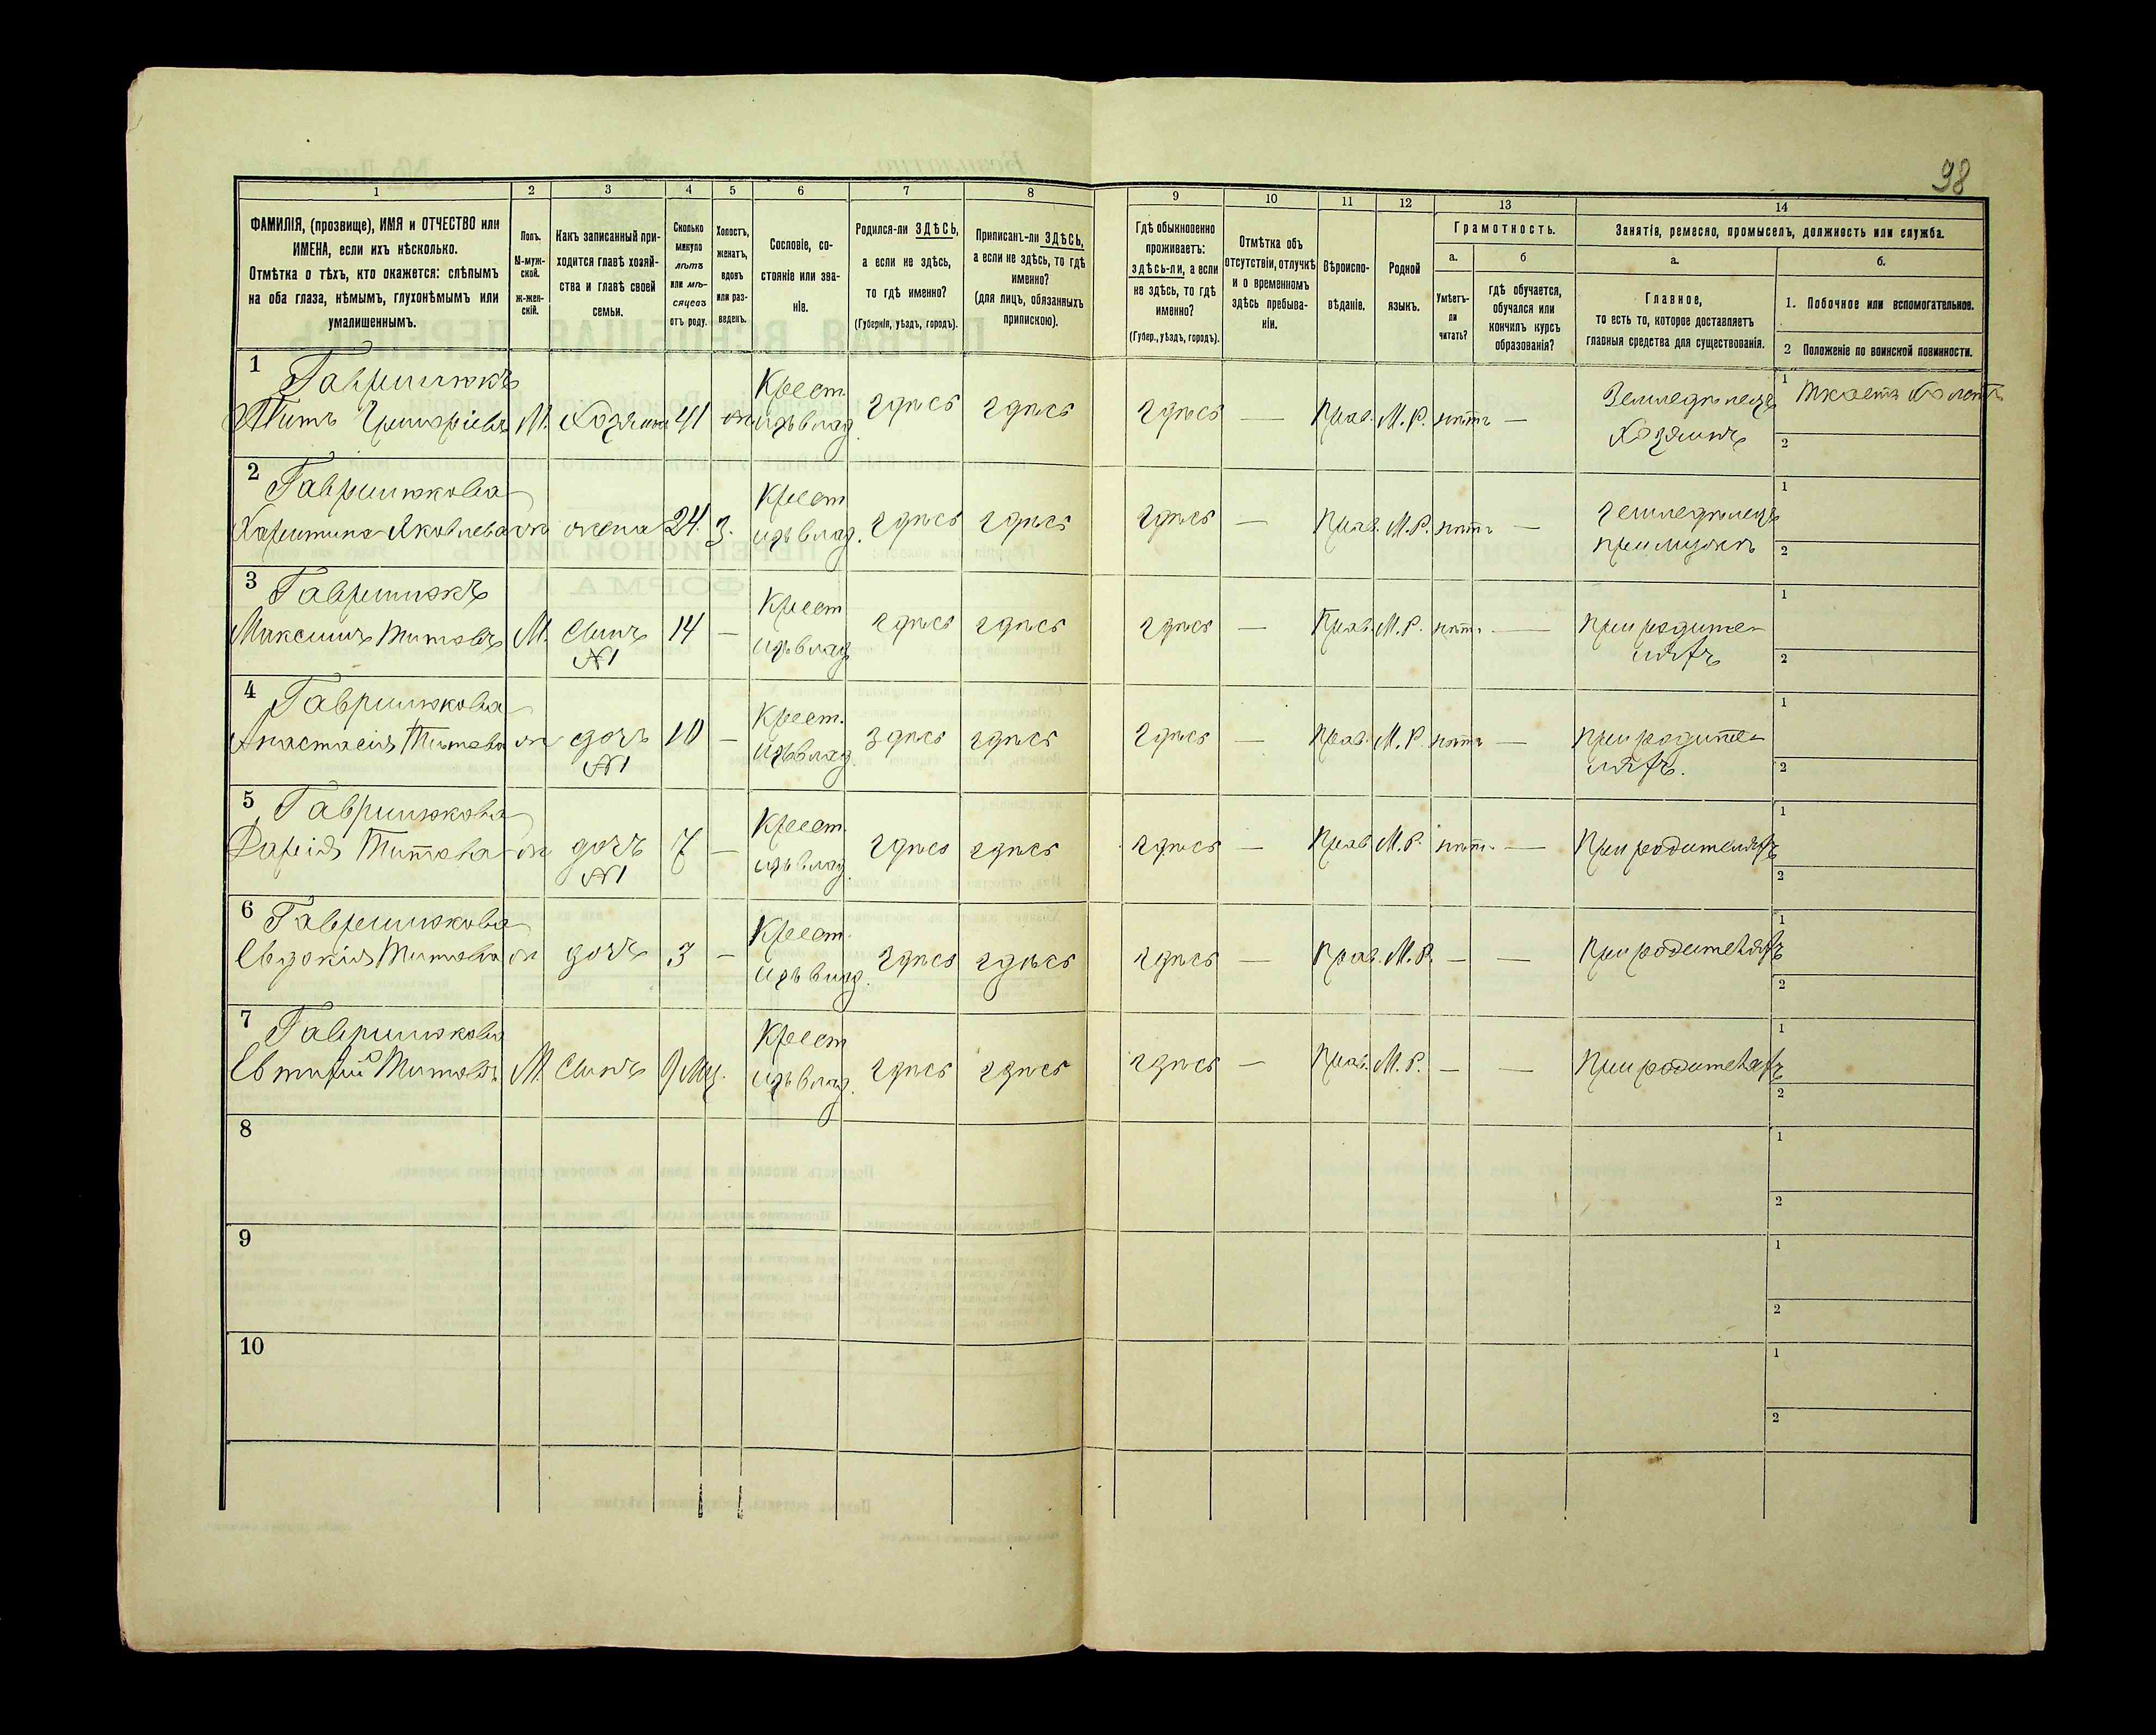 98
1 2 3 4 5 6 7 8 9 10 11 12 13 14
ФАМИЛІЯ, (прозвище), ИМЯ и ОТЧЕСТВО или
ИМЕНА, если ихъ нѣсколько.
Отмѣтка о тѣхъ, кто окажется: слѣпымъ
на оба глаза, нѣмымъ, глухонѣмымъ или
умалишеннымъ.
Полъ.
М-муж-
ской.
ж-жен-
скій.
Какъ записанный при-
ходится главѣ хозяй-
ства и главѣ своей
семьи.
Сколько
минуло
лѣтъ
или мѣ-
сяцевъ
отъ роду.
Холостъ,
женатъ,
вдовъ
или раз-
веденъ.
Сословіе, со-
стояніе или зва-
ніе.
Родился-ли ЗДѢСЬ,
а если не здѣсь,
то гдѣ именно?
(Губернія, уѣздъ, городъ).
Приписанъ-ли ЗДѢСЬ,
а если не здѣсь, то гдѣ
именно?
(для лицъ, обязанныхъ
припискою).
Гдѣ обыкновенно
проживаетъ:
здѣсь-ли, а если
не здѣсь, то гдѣ
именно?
(Губер., уѣздъ, городъ).
Отмѣтка объ
отсутствіи, отлучкѣ
и о временномъ
здѣсь пребыва-
ніи.
Вѣроиспо-
вѣданіе.
Родной
языкъ.
Грамотность.
а.
Умѣетъ-
ли
читать?
б
гдѣ обучается,
обучался или
кончилъ курсъ
образованія?
Занятія, ремесло, промыселъ, должность или служба.
а.
Главное,
то есть то, которое доставляетъ
главныя средства для существованія.
б.
1. Побочное или вспомогательное.
2 Положеніе по воинской повинности.
1 Гаврилюкъ
Титъ Григоріевъ М. Хозяинъ 41 ж. Крест.
изъ влад. здѣсь здѣсь здѣсь — Прав. М. Р. нѣтъ — Земледѣлецъ
Хозяинъ 1 Ткаетъ 2
2 Гаврилюкова
Харитина Яковлева ж жена 24. З. Крест
изъ влад. здѣсь здѣсь здѣсь — Прав. М. Р. нѣтъ — земледѣлецъ
при мужѣ 1 2
3 Гаврилюкъ
Максимъ Титовъ М. Сынъ
№1 14 — Крест
изъ влад здѣсь здѣсь здѣсь — Прав. М. Р. нѣтъ — при родите-
ляхъ 1 2
4 Гаврилюкова
Анастасія Титова ж дочь
№1 10 — Крест.
изъ влад. здѣсь здѣсь здѣсь — Прав. М. Р. нѣтъ — при родите-
ляхъ. 1 2
5 Гаврилюкова
Дарія Титова ж дочь
№1 7 — Крест.
изъ влад. здѣсь здѣсь здѣсь — Прав М. Р. нѣтъ — При родителяхъ 1 2
6 Гаврилюкова
Евдокія Титова ж дочь 3 — Крест.
изъ влад. здѣсь здѣсь здѣсь — Прав. М. Р. — — При родителяхъ 1 2
7 Гаврилюкова
Евтихій Титовъ М. Сынъ 9 мц. Крест
изъ влад. здѣсь здѣсь здѣсь — Прав. М. Р. — — При родителяхъ 1 2
8 1 2
9 1 2
10 1 2